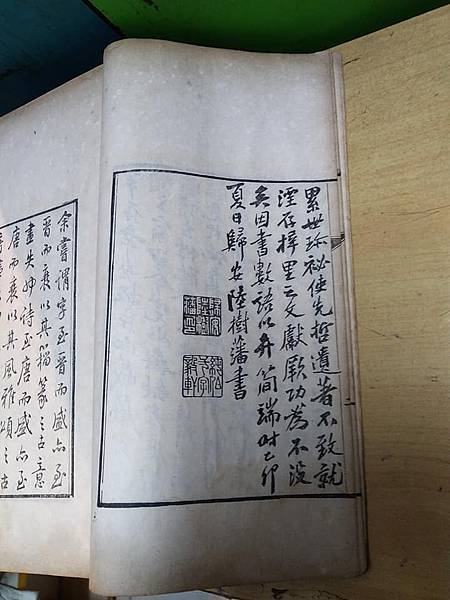 累世珎祕使先哲遺著不致就
湮存梓里之文獻厥功為不沒
矣因書數語以弁簡端時乙卯
夏日歸安陸樹藩書
歸安陸樹藩印
二
余嘗謂字至晉而盛亦至
晉而衰以其篆之古意
盡失詩至唐而盛亦至
唐而衰以其風雅頌之古